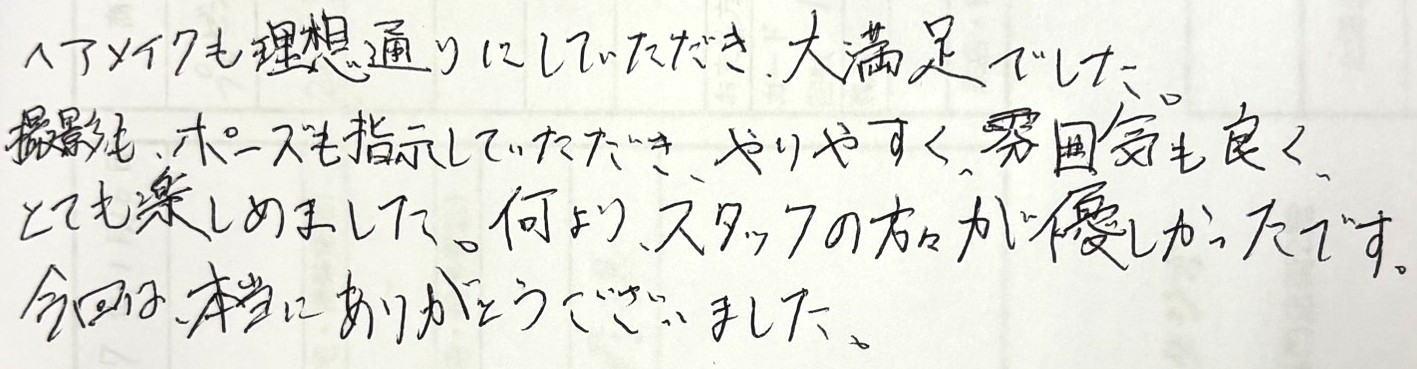 ヘアメイクも理想通りにしていただき、大満足でした。
撮影も、ポーズも指示していただき、やりやすく、雰囲気も良く、
とても楽しめました。何より、スタッフの方々が優しかったです。
今回は、本当にありがとうございました。